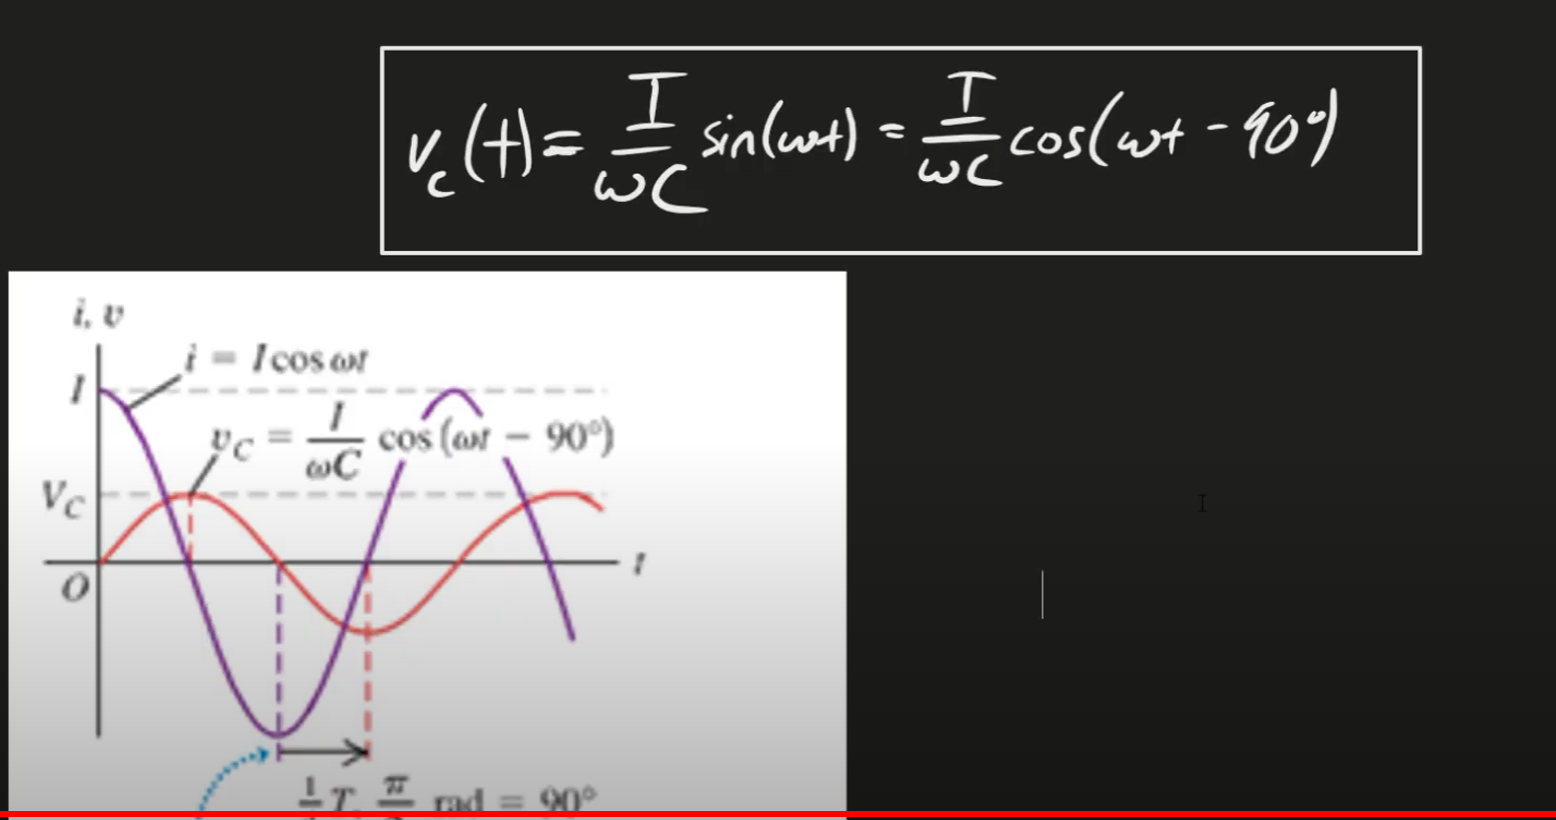 v_c(t) = I/ωC sin(ωt) = I/ωC cos(ωt - 90°)
i, v
i = I cos ωt
I
v_C = I/ωC cos(ωt − 90°)
V_C
O
t
T, π rad = 90°